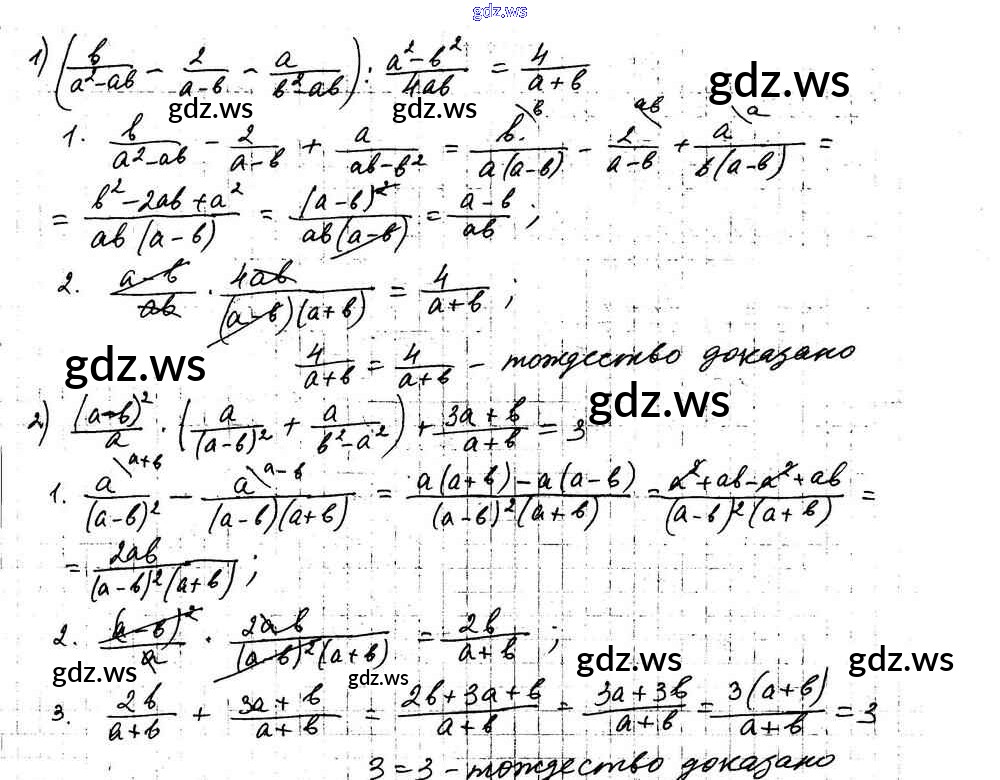 gdz.ws
1) (b/(a²-ab) - 2/(a-b) - a/(b²-ab)) : (a²-b²)/(4ab) = 4/(a+b)
gdz.ws
gdz.ws gdz.ws
1. b/(a²-ab) - 2/(a-b) + a/(ab-b²) = b\b/(a(a-b)) - 2\ab/(a-b) + a\a/(b(a-b)) =
= (b²-2ab+a²)/(ab(a-b)) = (a-b)²/(ab(a-b)) = (a-b)/(ab) ;
2. (a-b)/(ab) · 4ab/((a-b)(a+b)) = 4/(a+b) ;
gdz.ws
4/(a+b) = 4/(a+b) - тождество доказано
gdz.ws
2) (a-b)²/a · (a/(a-b)² + a/(b²-a²)) + (3a+b)/(a+b) = 3
1. a\a+b/(a-b)² - a\a-b/((a-b)(a+b)) = (a(a+b)-a(a-b))/((a-b)²(a+b)) = (a²+ab-a²+ab)/((a-b)²(a+b)) =
= 2ab/((a-b)²(a+b)) ;
2. (a-b)²/a · 2ab/((a-b)²(a+b)) = 2b/(a+b) ;
gdz.ws gdz.ws gdz.ws gdz.ws
3. 2b/(a+b) + (3a+b)/(a+b) = (2b+3a+b)/(a+b) = (3a+3b)/(a+b) = 3(a+b)/(a+b) = 3
3=3 - тождество доказано